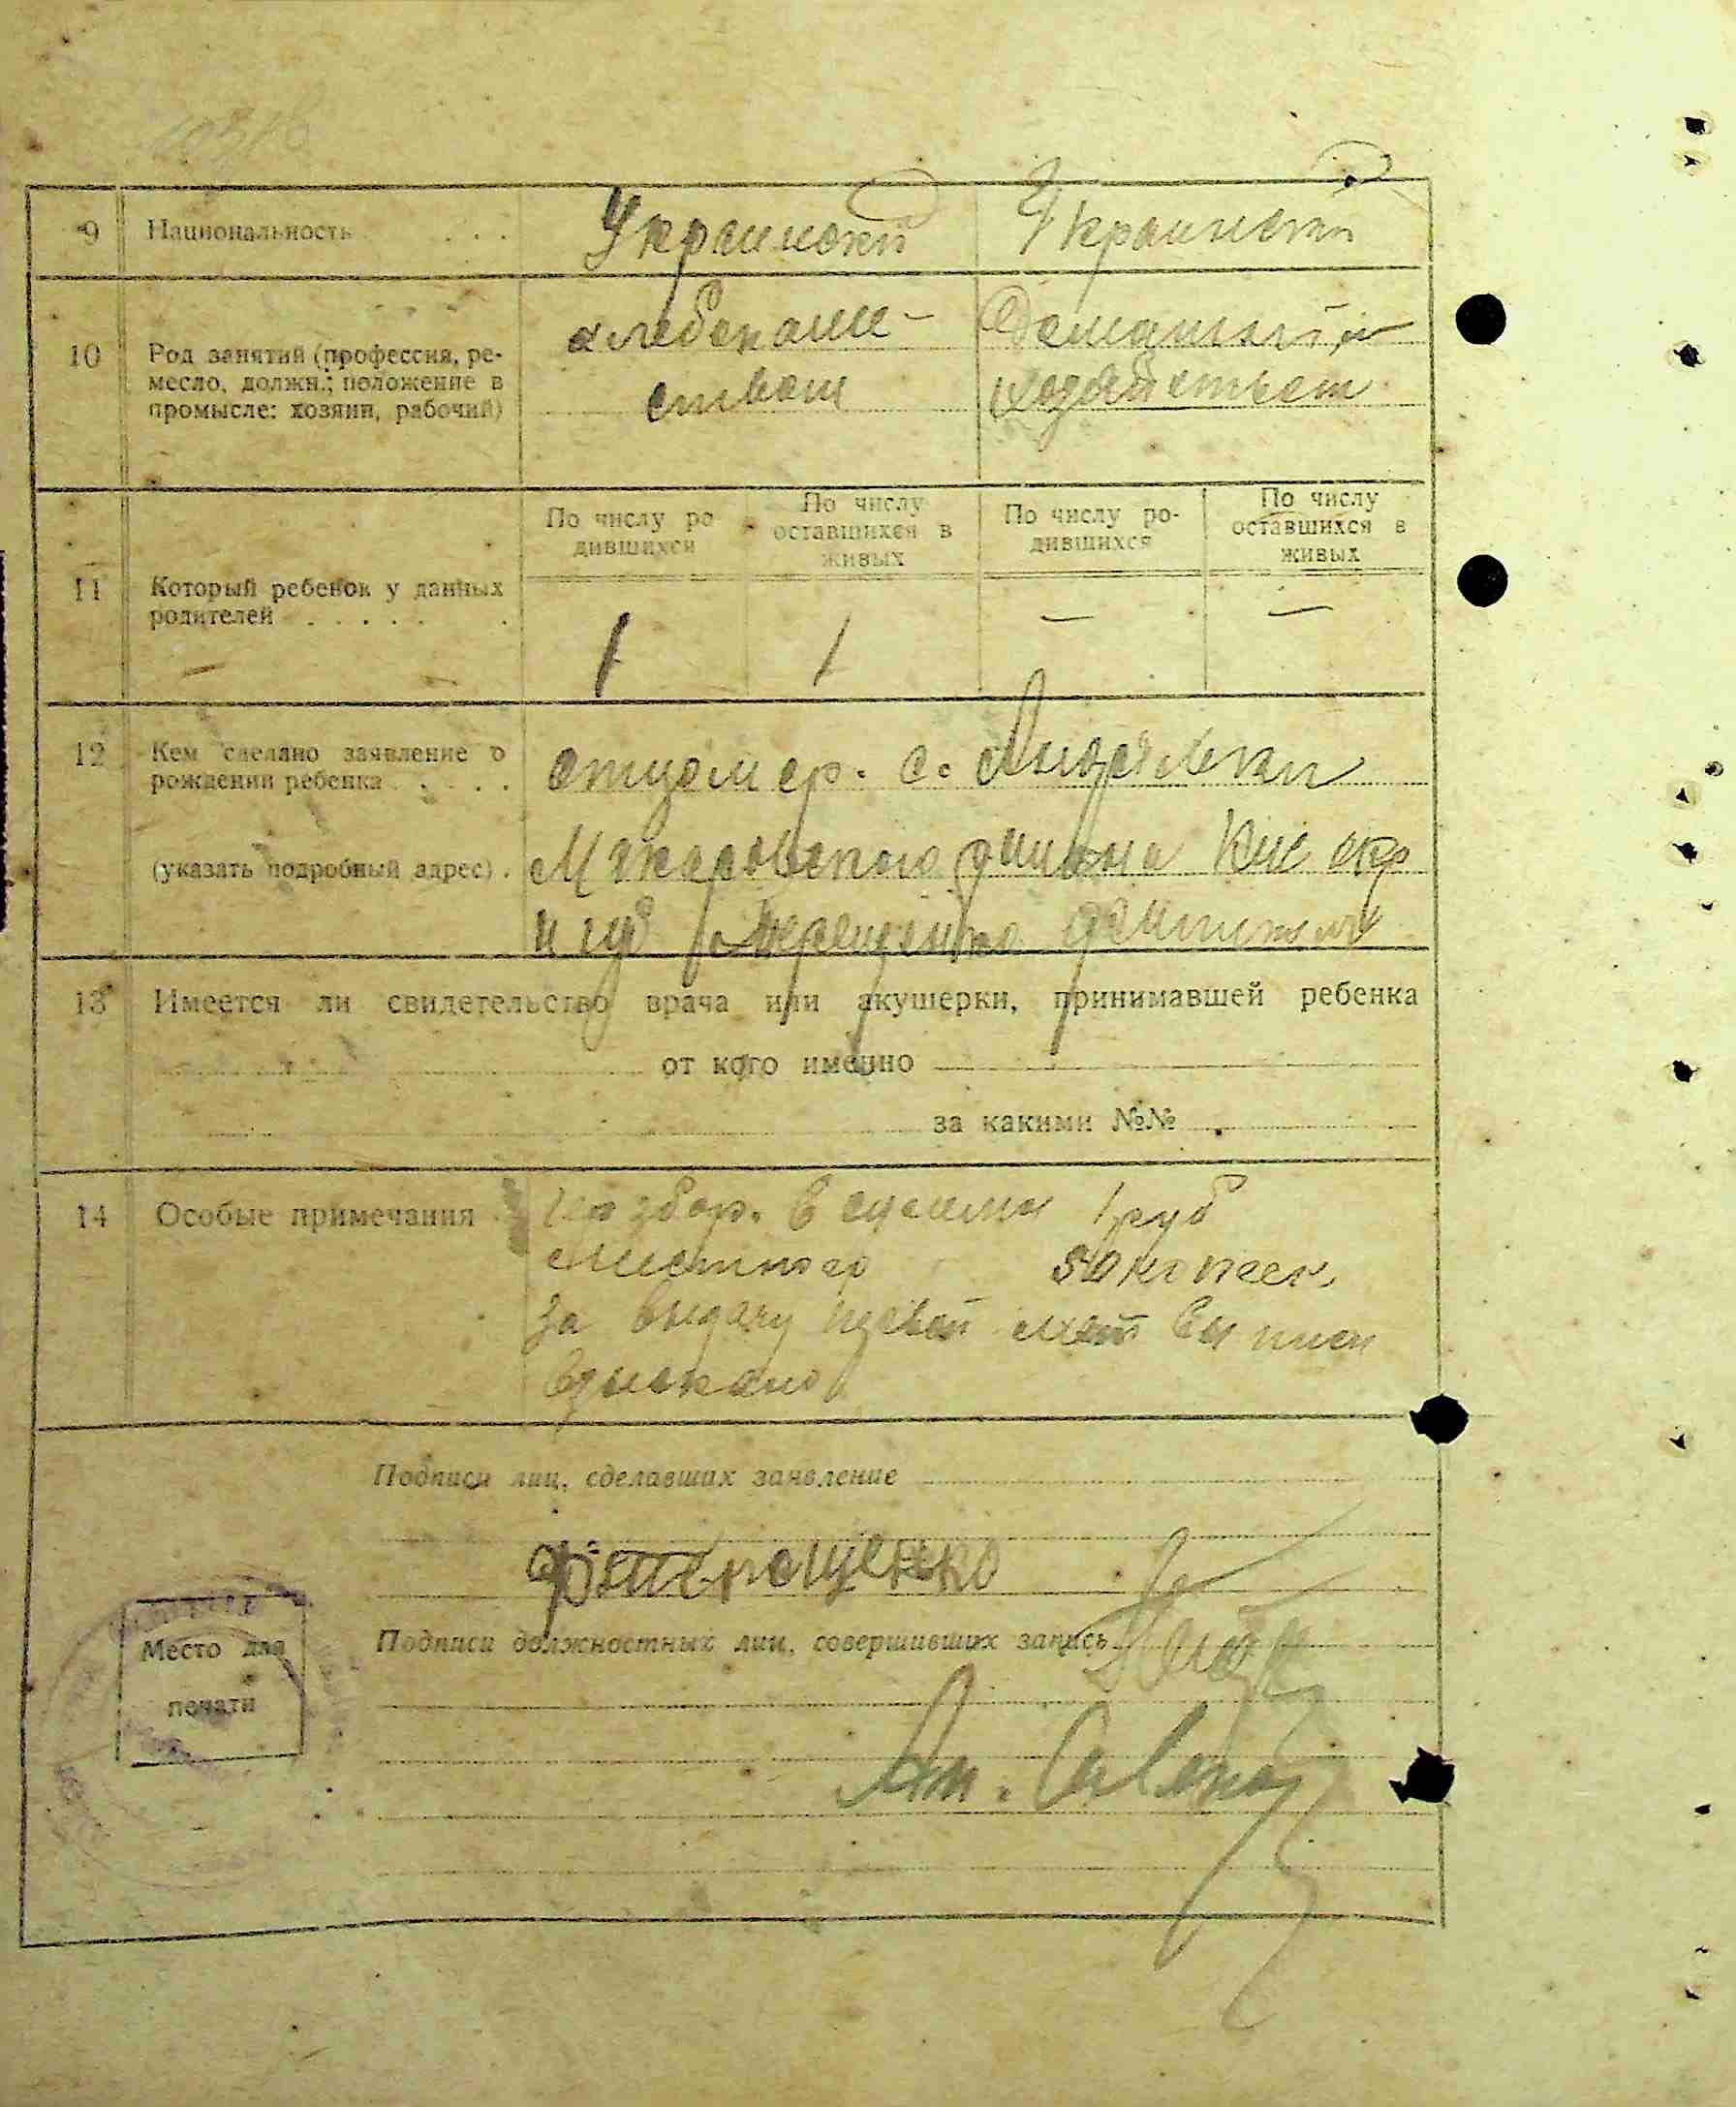 9 Национальность . . . Украинской Украинской
10 Род занятий (профессия, ре-
месло, должн.; положение в
промысле: хозяин, рабочий)
хлебопаше-
ством
Домашным
хозяйством
11 Который ребенок у данных
родителей . . . . . .
По числу ро
дившихся
По числу
оставшихся в
живых
По числу ро-
дившихся
По числу
оставшихся в
живых
1 1 — —
12 Кем сделано заявление о
рождении ребенка . . . .
(указать подробный адрес) .
отцом гр. с. Андреевки
Макаровского района Кие окр
и губ Терещенко
13 Имеется ли свидетельство врача или акушерки, принимавшей ребенка
от кого именно
за какими №№
14 Особые примечания
збор. в сумми 1 руб
50 копеек
за выдачу
взыскано
Подписи лиц, сделавших заявление
Терещенко
Подписи должностных лиц, совершивших запись
Место для
печати